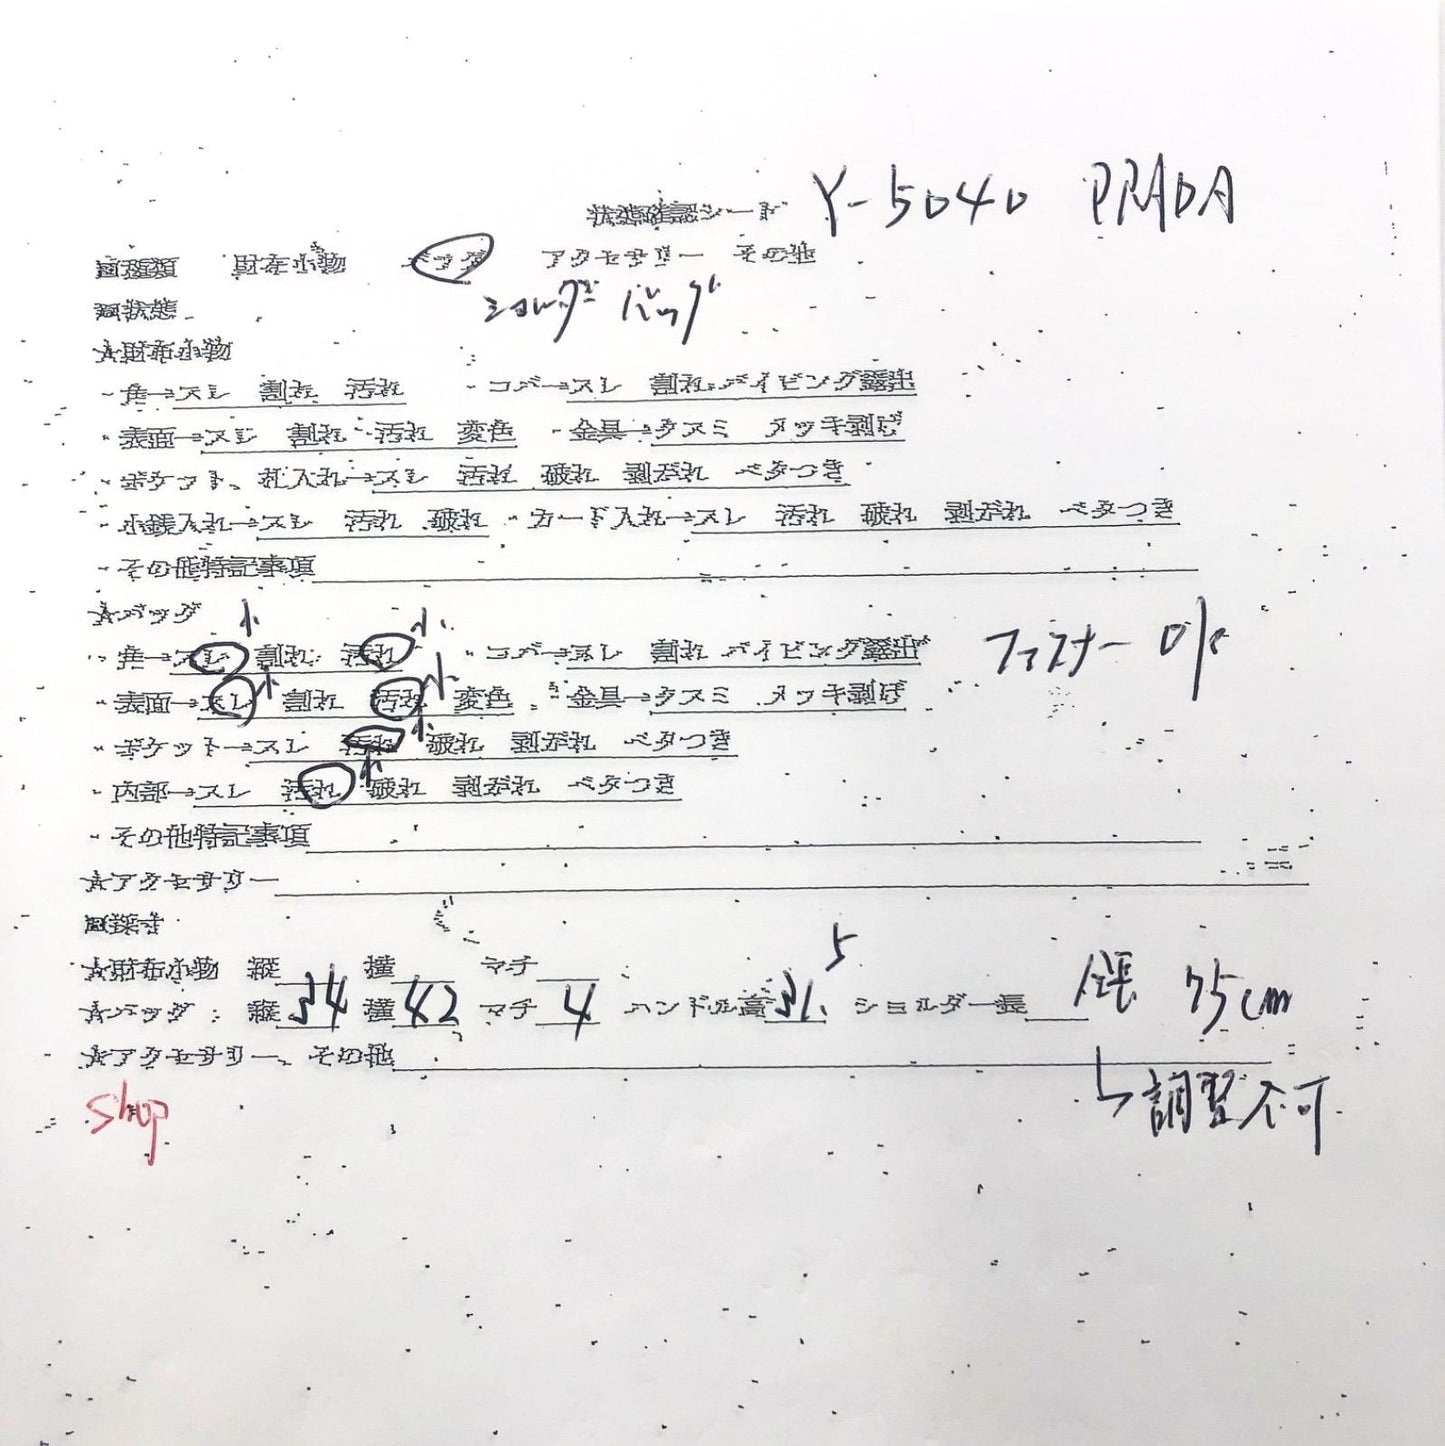 状態確認シート Y-5040 PRADA
種類 財布小物 バッグ アクセサリー その他
ショルダーバッグ
状態
☆財布小物
・角→スレ 割れ 汚れ ・コバ→スレ 割れ パイピング露出
・表面→スレ 割れ 汚れ 変色 ・金具→クスミ メッキ剥げ
・ポケット、札入れ→スレ 汚れ 破れ 剥がれ ベタつき
・小銭入れ→スレ 汚れ 破れ ・カード入れ→スレ 汚れ 破れ 剥がれ ベタつき
・その他特記事項
☆バッグ
小 小
・角→スレ 割れ 汚れ ・コバ→スレ 割れ パイピング露出 ファスナー OK
小 小
・表面→スレ 割れ 汚れ 変色 ・金具→クスミ メッキ剥げ
小
・ポケット→スレ 汚れ 破れ 剥がれ ベタつき
小
・内部→スレ 汚れ 破れ 剥がれ ベタつき
・その他特記事項
☆アクセサリー
採寸
☆財布小物 縦 横 マチ
☆バッグ: 縦34 横42 マチ4 ハンドル高31.5 ショルダー長 全長 75cm
☆アクセサリー、その他
↳調整不可
Shop